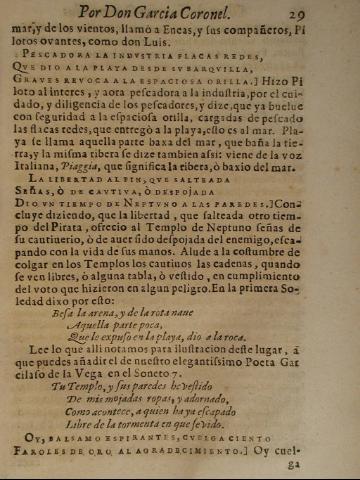 Por Don Garcia Coronel. 29
mar, y de los vientos, llamò a Eneas, y sus compañeros, Pi
lotos ovantes, como don Luis.
PESCADORA LA INDVSTRIA FLACAS REDES,
QVE DIO A LA PLAYA DESDE SV BARQVILLA,
GRAVES REVOCA A LA ESPACIOSA ORILLA.] Hizo Pi
loto al interes, y aora pescadora a la industria, por el cui-
dado, y diligencia de los pescadores, y dize, que ya buelue
con seguridad a la espaciosa orilla, cargadas de pescado
las flacas redes, que entregò a la playa, esto es al mar. Pla-
ya se llama aquella parte baxa del mar, que baña la tie-
rra, y la misma ribera se dize tambien assi: viene de la voz
Italiana, Piaggia, que significa la ribera, ò baxio del mar.
LA LIBERTAD AL FIN, QVE SALTEADA
SEÑAS, Ò DE CAVTIVA, Ò DESPOJADA
DIO VN TIEMPO DE NEPTVNO A LAS PAREDES.] Con-
cluye diziendo, que la libertad, que salteada otro tiem-
po del Pirata, ofrecio al Templo de Neptuno señas de
su cautiuerio, ò de auer sido despojada del enemigo, esca-
pando con la vida de sus manos. Alude a la costumbre de
colgar en los Templos los cautiuos las cadenas, quando
se ven libres, ò alguna tabla, ò vestido, en cumplimiento
del voto que hizieron en algun peligro. En la primera So-
ledad dixo por esto:
Besa la arena, y de la rota naue
Aquella parte poca,
Que le expuso en la playa, dio a la roca.
Lee lo que alli notamos para ilustracion deste lugar, ā
que puedes añadir el de nuestro elegantissimo Poeta Gar
cilaso de la Vega en el Soneto 7.
Tu Templo, y sus paredes he vestido
De mis mojadas ropas, y adornado,
Como acontece, a quien ha ya escapado
Libre de la tormenta en que se vido.
OY, BALSAMO ESPIRANTES, CVELGA CIENTO
FAROLES DE ORO AL AGRADECIMIENTO.] Oy cuel-
ga